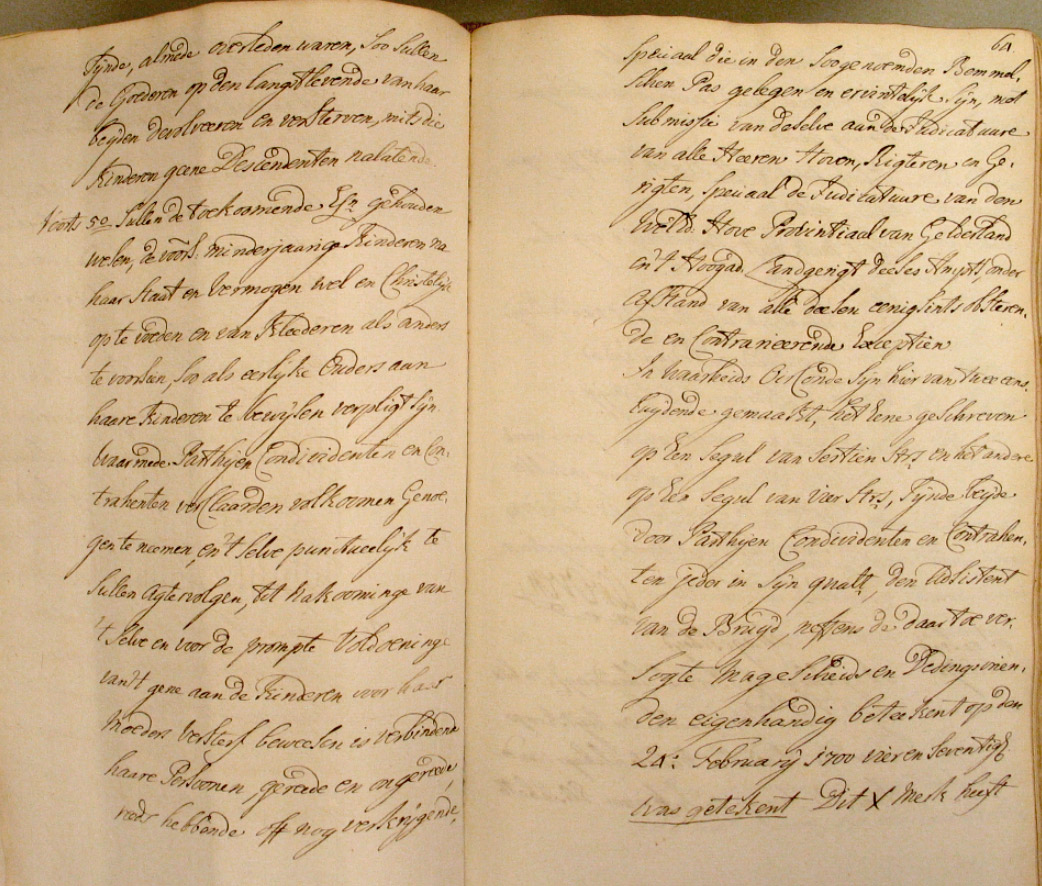 Sÿnde, almede overleden waren, Soo Sullen
de Goederen op den langstlevende van haar
beÿden devolveeren en versterven, mits die
Kinderen geene Descendenten nalatende.
Voorts 5o Sullen de toekoomende Esn gehouden
wesen, de voors. minderjaarige Kinderen na
haar Staat en vermogen wel en Christelÿk
op te voeden en van Kleederen als anders
te voorsien, Soo als eerlÿke Ouders aan
haare Kinderen te bewÿsen verpligt sÿn
Waarmede Parthÿen Condividenten en Con-
trahenten verclaarden volkoomen Genoe-
gen te neemen, en 't Selve punctueelÿk te
Sullen agtervolgen, tot nakoominge van
't Selve en voor de prompte Voldoeninge
van't gene aan de Kinderen voor haar
Moeders versterf beweesen is verbindende
haare Persoonen, gerede en ongerede,
reeds hebbende off nog verkrÿgende,
61
Speciaal die in den Soogenoemden Bommel-
schen Pas gelegen en ervintelÿk Sÿn, met
Submissie van deselve aan de Judicatuure
van alle Heeren Hoven, Rigteren en Ge-
rigten, Speciaal de Judicatuure van den
Weld. Hove Provintiaal van Gelderland
en 't Hoogad. Landgerigt deeses Ampts, onder
Afstand van alle deesen eenigsints obsteren-
de en Contrarieerende Exceptien
In Waarheids Oirconde Sÿn hier van twee eens-
luÿdende gemaakt, het Eene geschreven
op Een Segul van Sestien Strs. en het andere
op Een Segul van Vier Strs, Sÿnde beÿde
door Parthÿen Condividenten en Contrahen-
ten jeder in Sÿn qualt, den Adsistent
van de Bruÿd, neffens de daar toe ver-
Sogte Mage Scheids en Dedingsvrien-
den eigenhandig betekent op den
24: Februarÿ 1700 vier en Seventig
was getekent Dit X Merk heeft